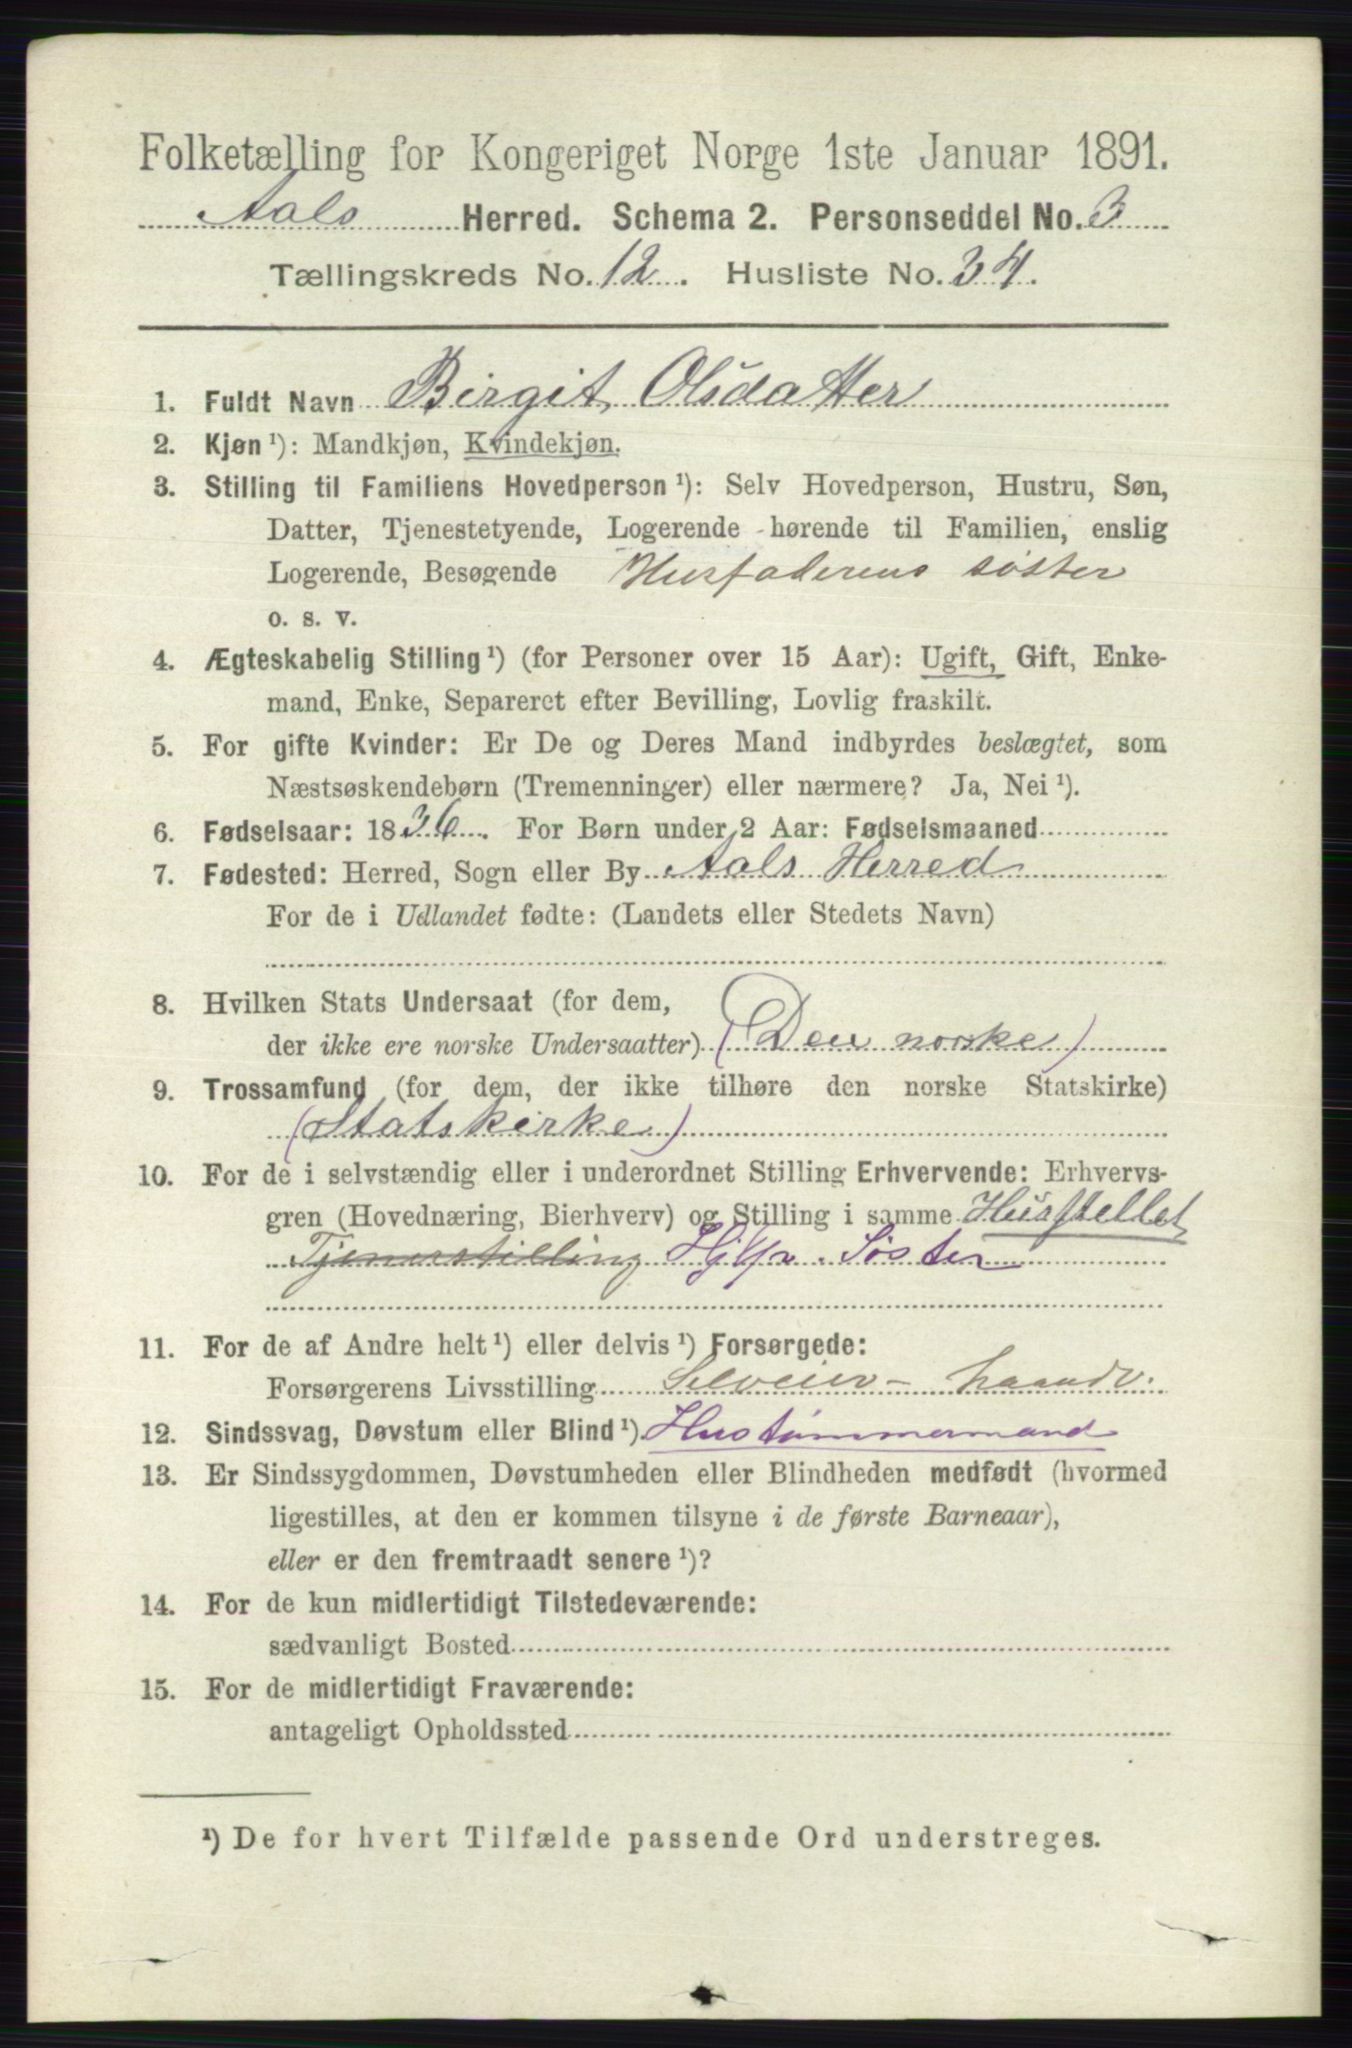 Folketælling for Kongeriget Norge 1ste Januar 1891.
Aals Herred. Schema 2. Personseddel No. 3
Tællingskreds No. 12. Husliste No. 34.
1. Fuldt Navn Birgit Olsdatter
2. Kjøn ¹): Mandkjøn, Kvindekjøn.
3. Stilling til Familiens Hovedperson ¹): Selv Hovedperson, Hustru, Søn,
Datter, Tjenestetyende, Logerende hørende til Familien, enslig
Logerende, Besøgende Husfaderens søster
o. s. v.
4. Ægteskabelig Stilling ¹) (for Personer over 15 Aar): Ugift, Gift, Enke-
mand, Enke, Separeret efter Bevilling, Lovlig fraskilt.
5. For gifte Kvinder: Er De og Deres Mand indbyrdes beslægtet, som
Næstsøskendebørn (Tremenninger) eller nærmere? Ja, Nei ¹).
6. Fødselsaar: 1836. For Børn under 2 Aar: Fødselsmaaned
7. Fødested: Herred, Sogn eller By Aals Herred
For de i Udlandet fødte: (Landets eller Stedets Navn)
8. Hvilken Stats Undersaat (for dem,
der ikke ere norske Undersaatter) (Den norske)
9. Trossamfund (for dem, der ikke tilhøre den norske Statskirke)
(Statskirke)
10. For de i selvstændig eller i underordnet Stilling Erhvervende: Erhvervs-
gren (Hovednæring, Bierhverv) og Stilling i samme Husstellet
Tjenerstilling Søster
11. For de af Andre helt ¹) eller delvis ¹) Forsørgede:
Forsørgerens Livsstilling Selveier-
12. Sindssvag, Døvstum eller Blind ¹) Hustømmermand
13. Er Sindssygdommen, Døvstumheden eller Blindheden medfødt (hvormed
ligestilles, at den er kommen tilsyne i de første Barneaar),
eller er den fremtraadt senere ¹)?
14. For de kun midlertidigt Tilstedeværende:
sædvanligt Bosted
15. For de midlertidigt Fraværende:
antageligt Opholdssted
¹) De for hvert Tilfælde passende Ord understreges.